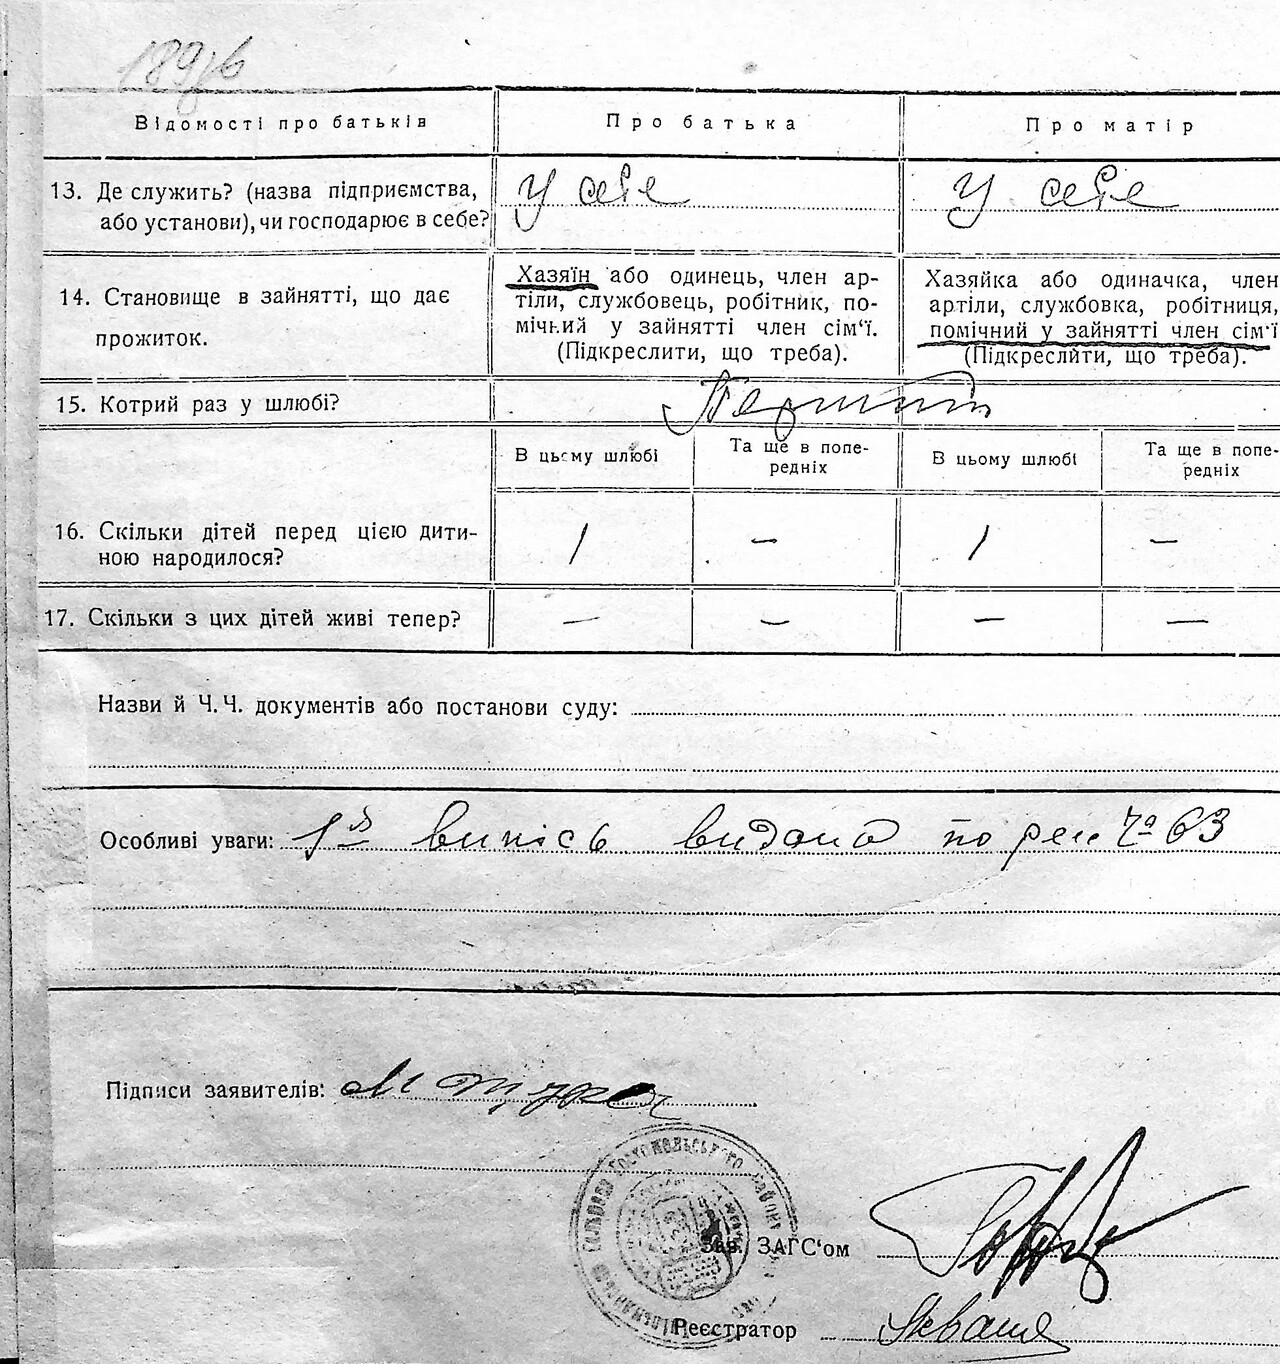 Відомості про батьків
Про батька
Про матір
13. Де служить? (назва підприємства,
або установи), чи господарює в себе?
У себе
У себе
14. Становище в зайнятті, що дає
прожиток.
Хазяїн або одинець, член ар-
тіли, службовець, робітник, по-
мічний у зайнятті член сім‘ї.
(Підкреслити, що треба).
Хазяйка або одиначка, член
артіли, службовка, робітниця,
помічний у зайнятті член сім‘ї
(Підкреслити, що треба).
15. Котрий раз у шлюбі?
В цьому шлюбі
Та ще в попе-
редніх
В цьому шлюбі
Та ще в попе-
редніх
16. Скільки дітей перед цією дити-
ною народилося?
1
—
1
—
17. Скільки з цих дітей живі тепер?
—
—
—
—
Назви й Ч.Ч. документів або постанови суду:
Особливі уваги: випісь видана по 63
Підписи заявителів:
Гостомельського району
Зав. ЗАГС‘ом
Реєстратор